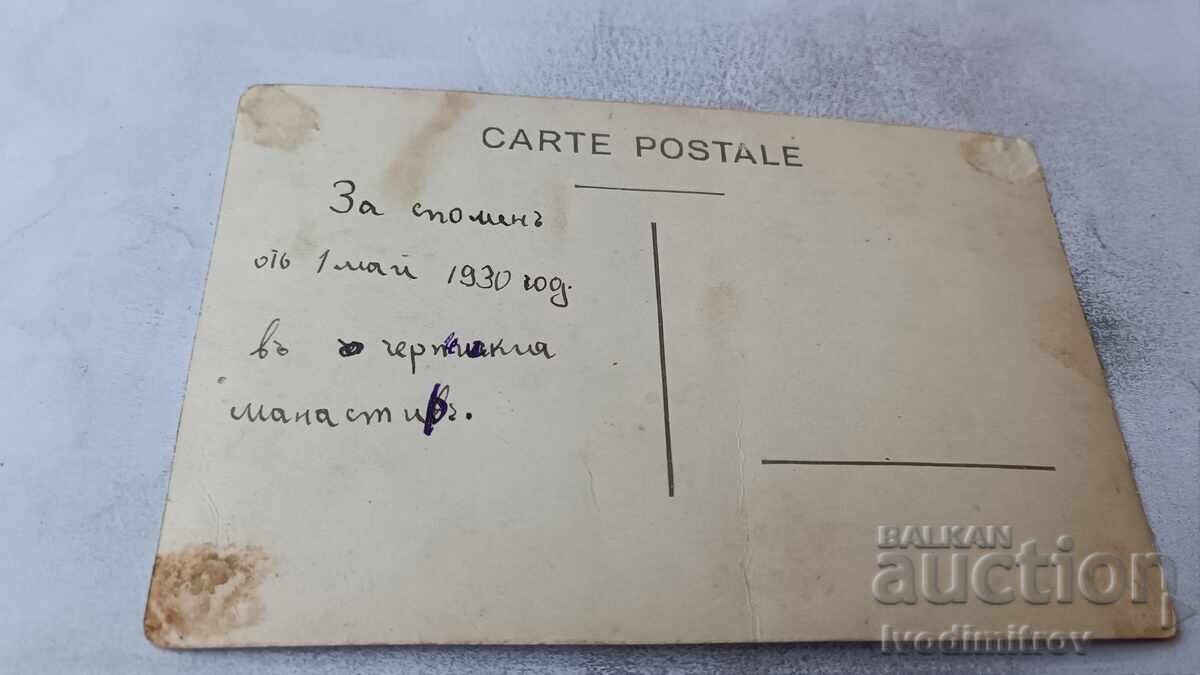 CARTE POSTALE
За споменъ
отъ 1 май 1930 год.
въ
манастиръ.
BALKAN
auction
Ivodimitrov